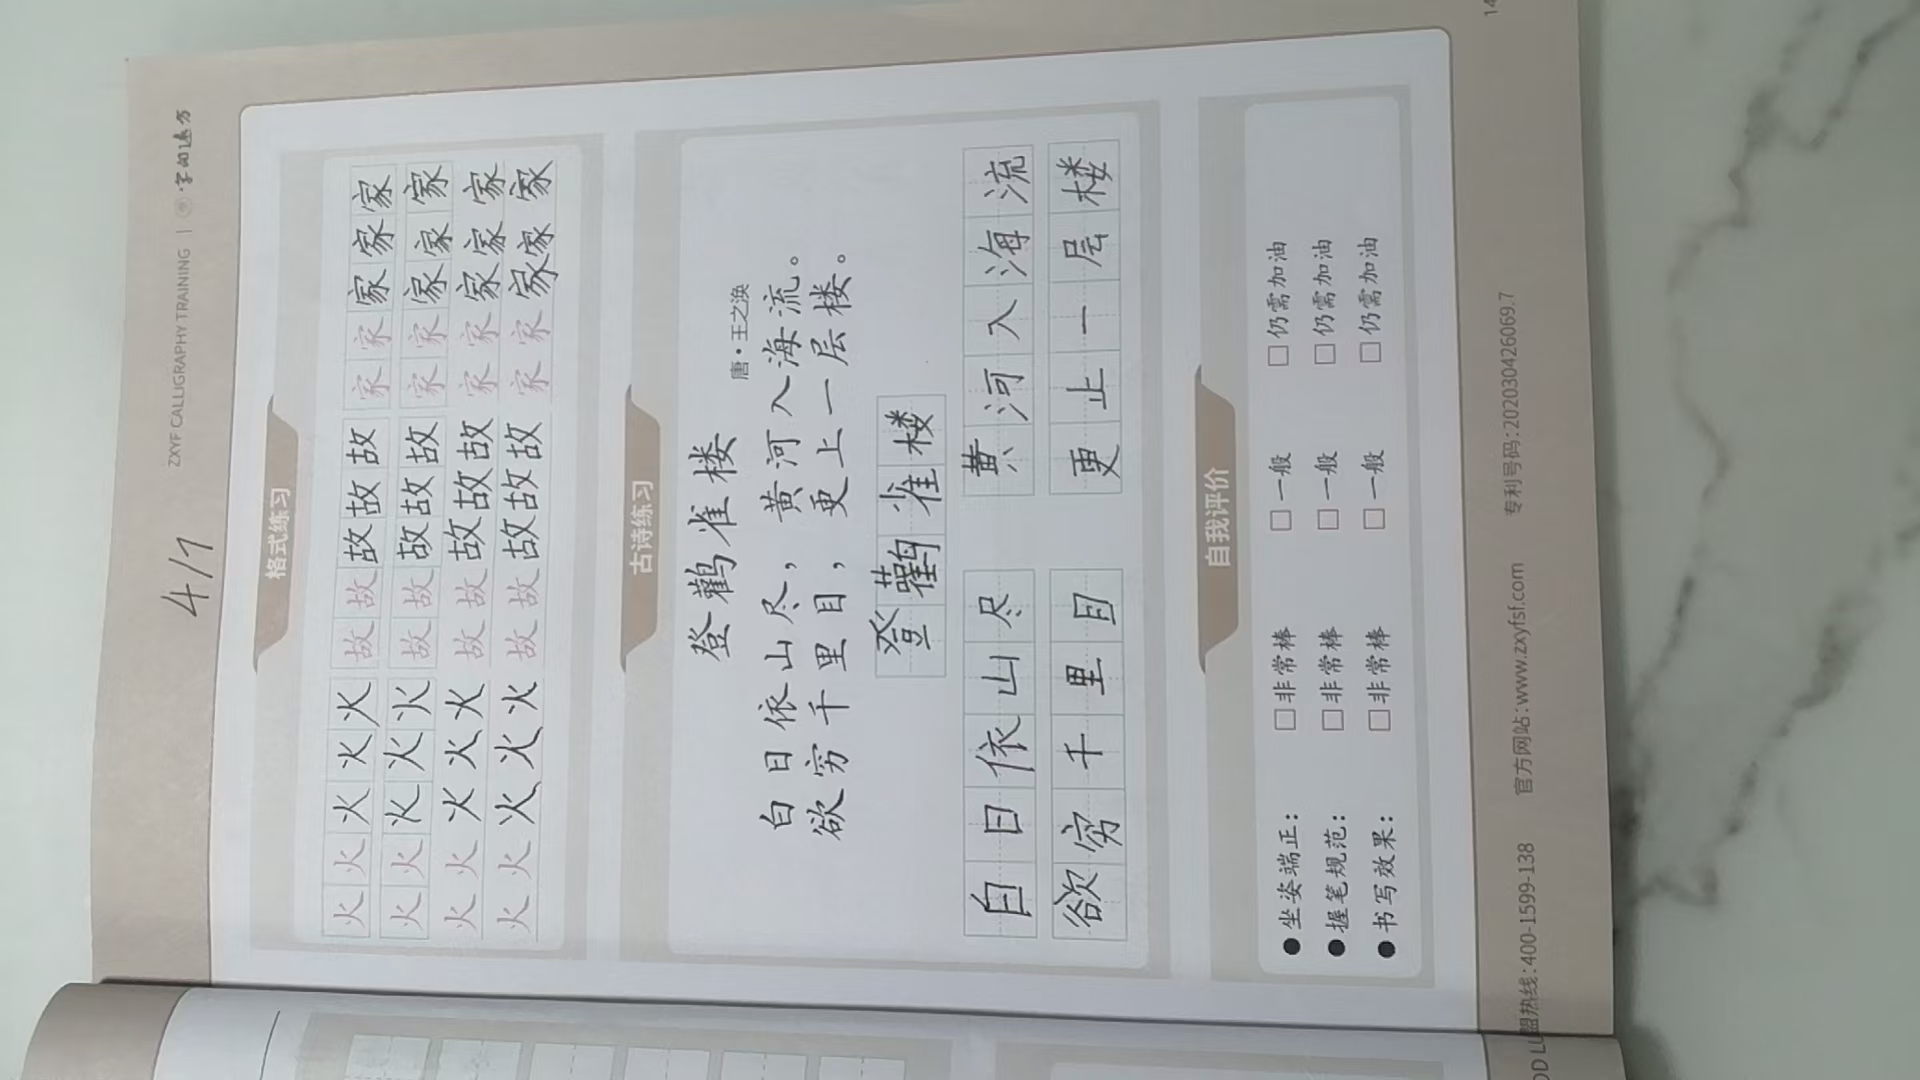 4/7
ZXYF CALLIGRAPHY TRAINING | ·字向远方
格式练习
火火火火火 故故故故故 家家家家家
火火火火火 故故故故故 家家家家家
火火火火火 故故故故故 家家家家家
火火火火火 故故故故故 家家家家家
古诗练习
登鹳雀楼
唐·王之涣
白日依山尽，黄河入海流。
欲穷千里目，更上一层楼。
登鹳雀楼
白日依山尽 黄河入海流
欲穷千里目 更止一层楼
自我评价
●坐姿端正： □非常棒 □一般 □仍需加油
●握笔规范： □非常棒 □一般 □仍需加油
●书写效果： □非常棒 □一般 □仍需加油
盟热线:400-1599-138 官方网站:www.zxyfsf.com 专利号码:202030426069.7